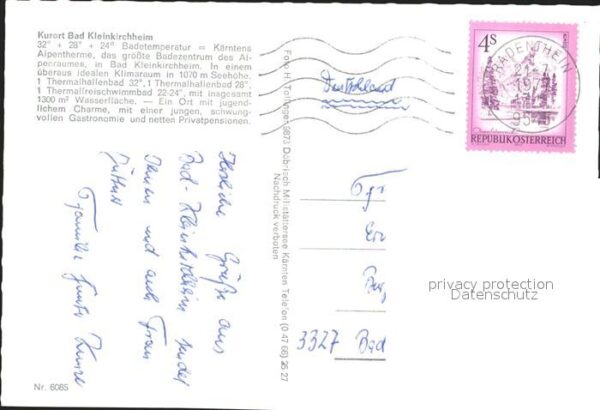 Kurort Bad Kleinkirchheim
32° + 28° + 24° Badetemperatur = Kärntens
Alpentherme, das größte Badezentrum des Al-
penraumes, in Bad Kleinkirchheim. In einem
überaus idealen Klimaraum in 1070 m Seehöhe.
1 Thermalhallenbad 32°, 1 Thermalhallenbad 28°,
1 Thermalfreischwimmbad 22-24°, mit insgesamt
1300 m² Wasserfläche. — Ein Ort mit jugend-
lichem Charme, mit einer jungen, schwung-
vollen Gastronomie und netten Privatpensionen.
Herzliche Grüße aus
Bad-Kleinkirchheim sendet
Ihnen und auch Frau
Familie
Nr. 6085
Foto H. 9873 Döbriach Millstättersee Kärnten Telefon (0 47 66) 26 27
Nachdruck verboten
Deutschland
4S
REPUBLIK ÖSTERREICH
3327 Bad
privacy protection
Datenschutz